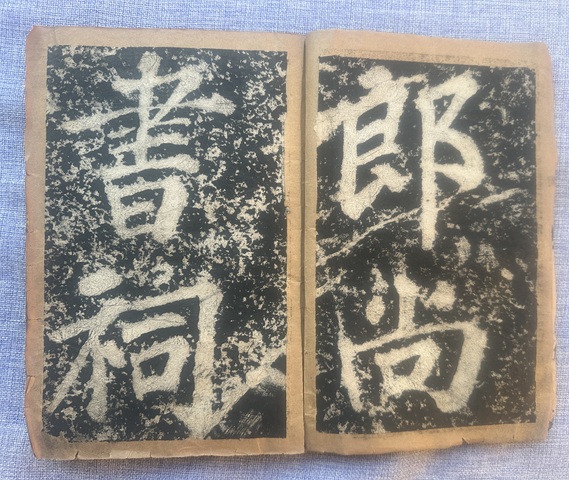 郎尚
書祠